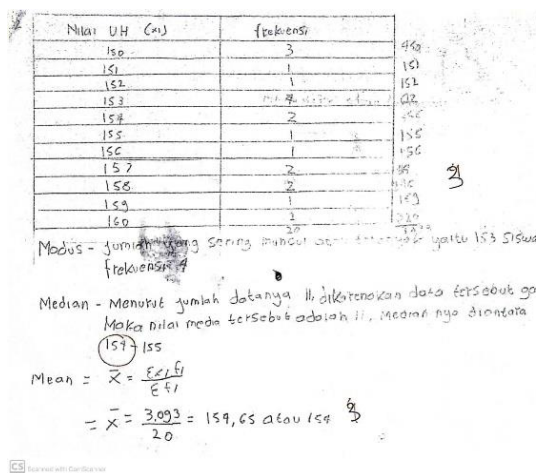 Nilai UH (xi) frekuensi
150 3
151 1 151
152 1 152
153 4
154 2
155 1 155
156 1 156
157 2
158 2
159 1 159
160 2
20
Modus - Jumlah yang sering muncul yaitu 153 siswa
frekuensi 4
Median - Menurut jumlah datanya 11, dikarenakan data tersebut
Maka nilai media tersebut adalah 11, Median nya diantara
154 - 155
Mean = x̄ = Σxifi / Σfi
= x̄ = 3.093 / 20 = 154,65 atau 154
CS Scanned with CamScanner